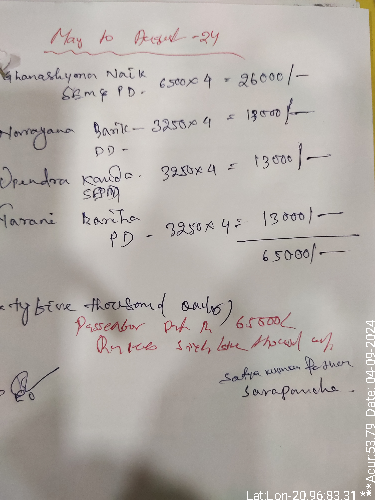 May to August - 24
Ghanashyama Naik
SBM & PD - 6500 x 4 = 26000/-
Narayana Barik - 3250 x 4 = 13000/-
PD -
Upendra Kanda. 3250 x 4 = 13000/-
SBM
Tarani Barika
PD - 3250 x 4 = 13000/-
65000/-
tyfive thousand only)
Passed for Rs 65000/-
Rupees Sixty five thousand only
Satya
Sarapancha.
Lat:Lon-20.96:83.31 ***Acur:53.79 Date: 04-09-2024